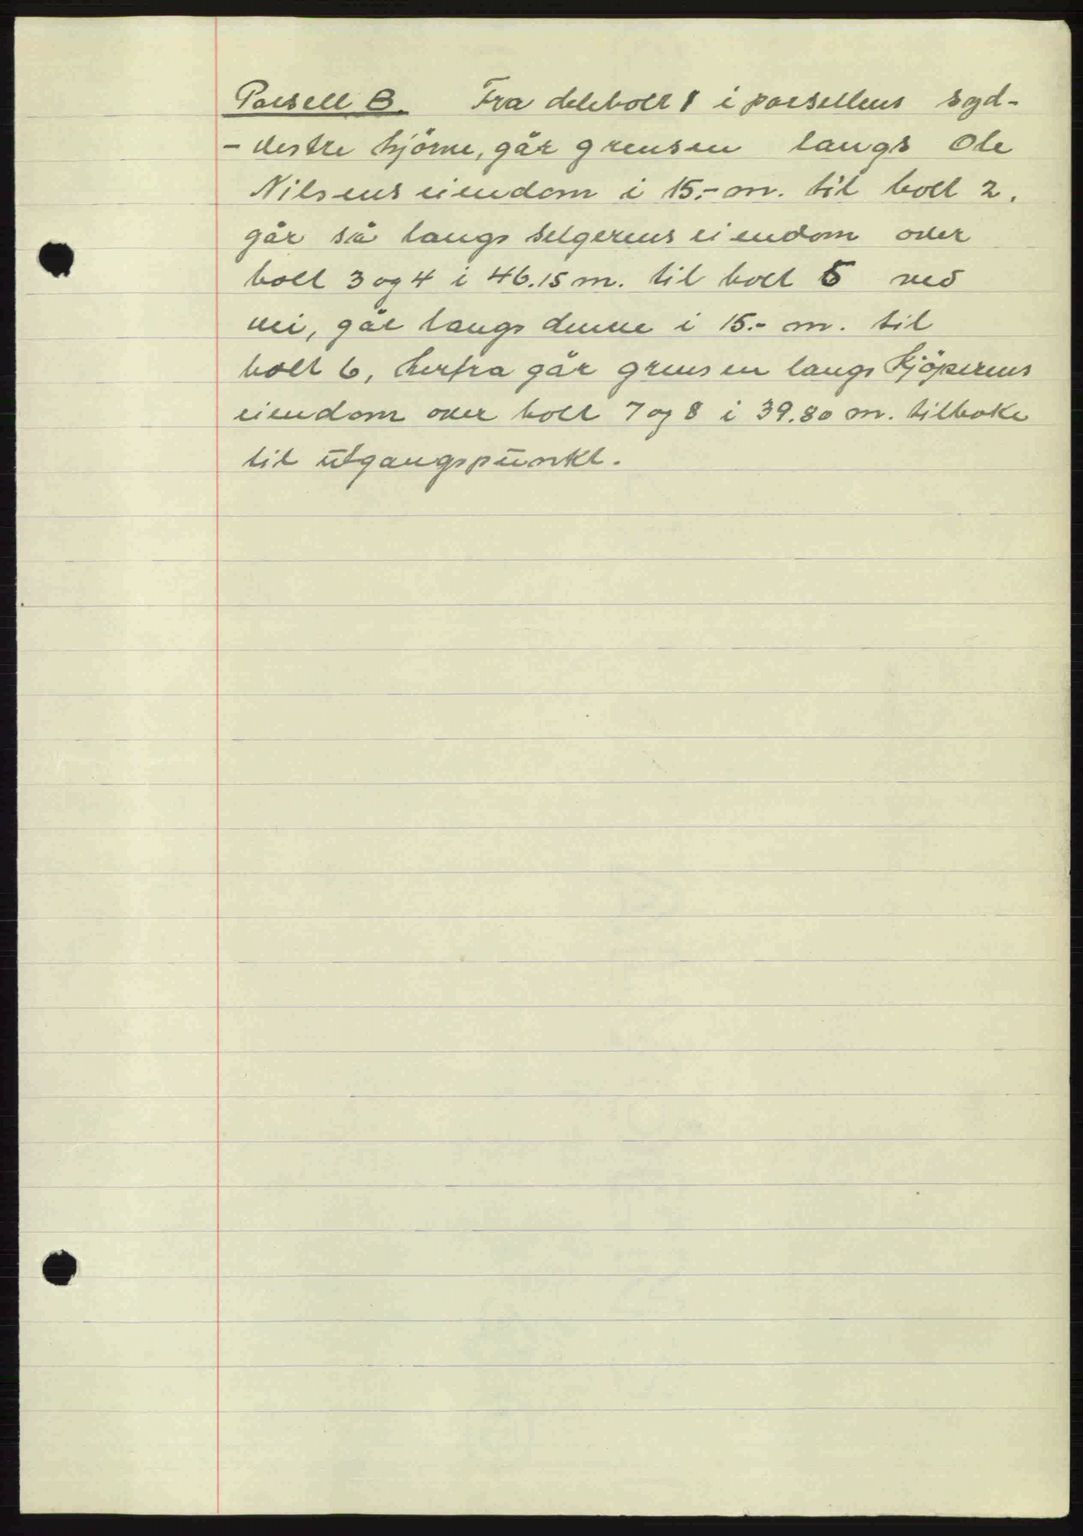 Parsell B. Fra delebolt 1 i parsellens syd-
- vestre hjörne, går grensen langs Ole
Nilsens eiendom i 15.- m. til bolt 2.
går så langs selgerens eiendom over
bolt 3 og 4 i 46.15 m. til bolt 5 ved
vei, går langs denne i 15.- m. til
bolt 6, herfra går grensen langs kjöperens
eiendom over bolt 7 og 8 i 39.80 m. tilbake
til utgangspunkt.